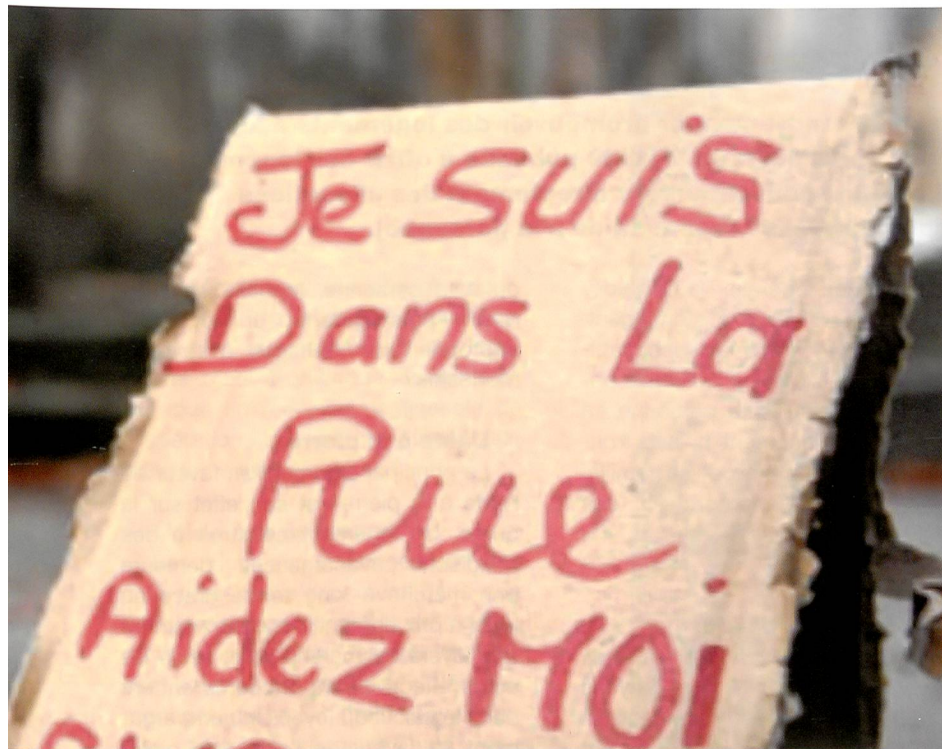 Je SUiS
Dans La
Rue
Aidez MOi